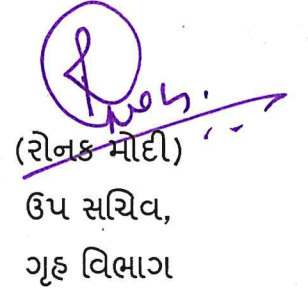 (રોનક મોદી)
ઉપ સચિવ,
ગૃહ વિભાગ